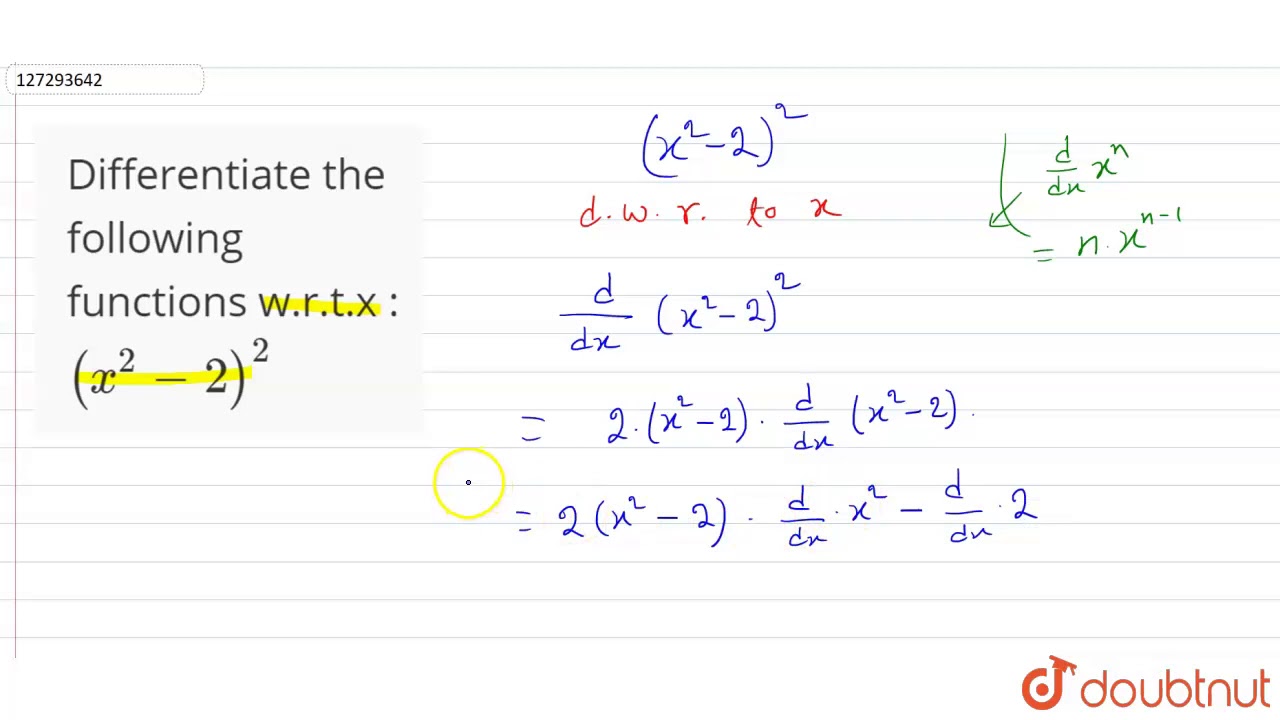 127293642
Differentiate the
following
functions w.r.t.x :
(x² − 2)²
(x² − 2)²
d.w.r. to x
d/dx xⁿ
= n.xⁿ⁻¹
d/dx (x² − 2)²
= 2.(x² − 2) . d/dx (x² − 2) .
= 2 (x² − 2) . d/dx . x² − d/dx . 2
doubtnut